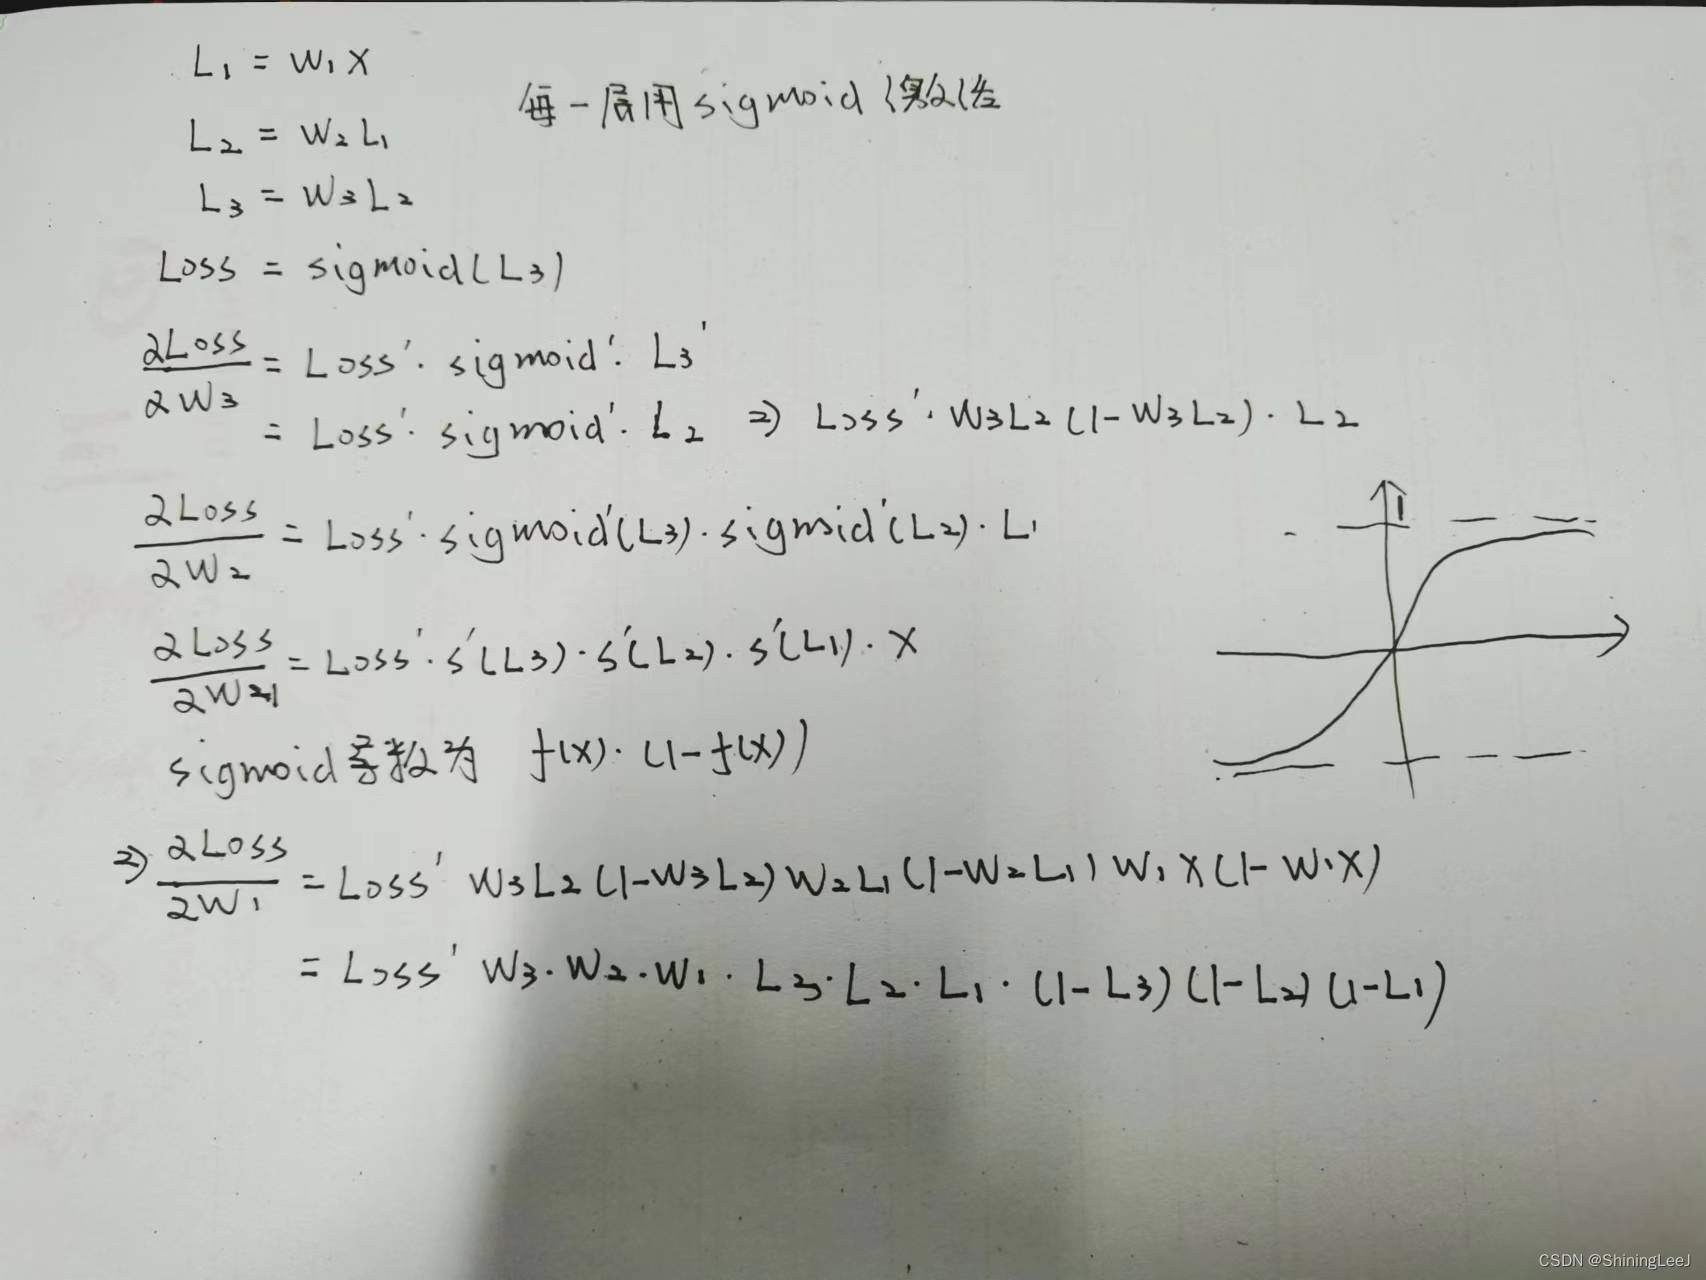 L₁ = W₁X
每一层用sigmoid激活
L₂ = W₂L₁
L₃ = W₃L₂
Loss = sigmoid(L₃)
∂Loss/∂W₃ = Loss'· sigmoid'· L₃'
= Loss'· sigmoid'· L₂ ⇒ Loss'· W₃L₂(1-W₃L₂)· L₂
∂Loss/∂W₂ = Loss'· sigmoid'(L₃)· sigmoid'(L₂)· L₁
1
∂Loss/∂W₁ = Loss'· s'(L₃)· s'(L₂)· s'(L₁)· X
sigmoid导数为 f(x)· (1-f(x))
⇒ ∂Loss/∂W₁ = Loss' W₃L₂(1-W₃L₂)W₂L₁(1-W₂L₁)W₁X(1-W₁X)
= Loss' W₃·W₂·W₁· L₃·L₂·L₁· (1-L₃)(1-L₂)(1-L₁)
CSDN @ShiningLeeJ